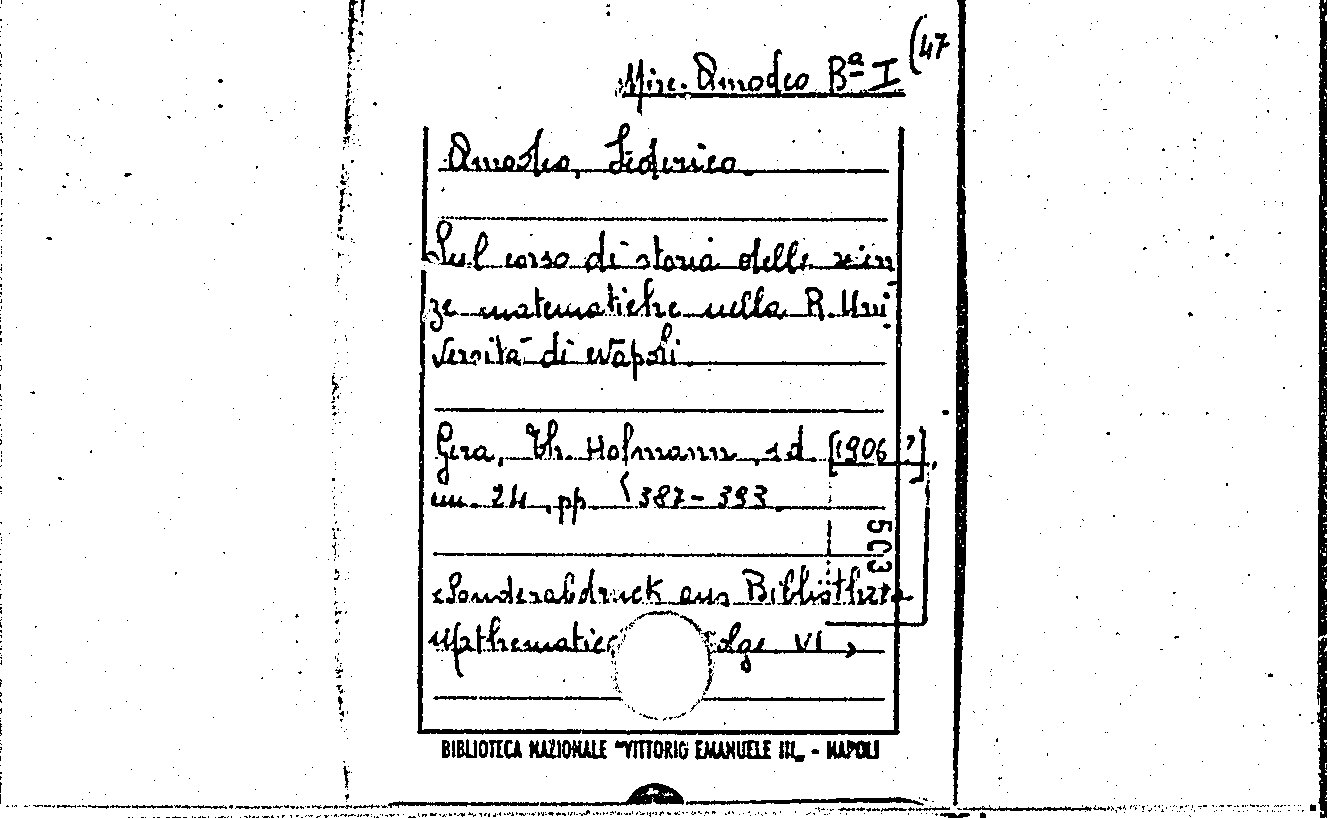 Misc. Amodeo Bª I (47
Amodeo, Federico.
Sul corso di storia delle scien
ze matematiche nella R. Uni
versità di Napoli.
Gera, Th. Hofmann, s.d. [1906?],
in. 24, pp. (387-393.
503
«Sonderabdruck aus Bibliotheca
Mathematica olge. VI»
BIBLIOTECA NAZIONALE "VITTORIO EMANUELE III„ - NAPOLI